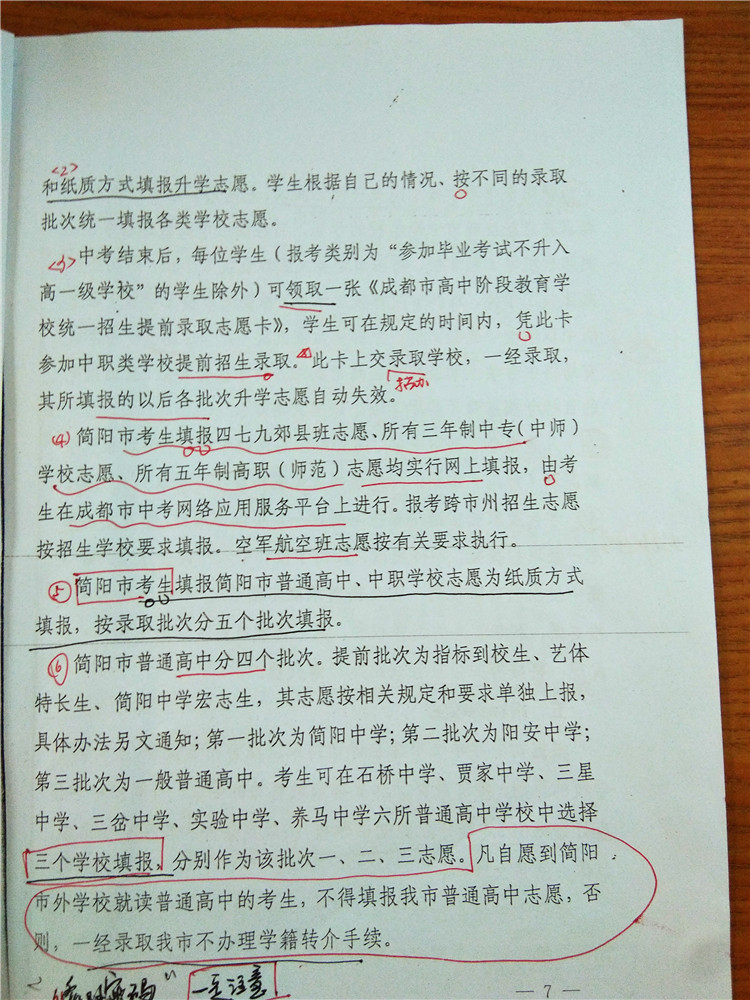 <2>
和纸质方式填报升学志愿。学生根据自己的情况、按不同的录取
批次统一填报各类学校志愿。
<3> 中考结束后，每位学生（报考类别为“参加毕业考试不升入
高一级学校”的学生除外）可领取一张《成都市高中阶段教育学
校统一招生提前录取志愿卡》，学生可在规定的时间内，凭此卡
参加中职类学校提前招生录取。此卡上交录取学校，一经录取，
招办
其所填报的以后各批次升学志愿自动失效。
(4) 简阳市考生填报四七九郊县班志愿、所有三年制中专（中师）
学校志愿、所有五年制高职（师范）志愿均实行网上填报，由考
生在成都市中考网络应用服务平台上进行。报考跨市州招生志愿
按招生学校要求填报。空军航空班志愿按有关要求执行。
⑤ 简阳市考生填报简阳市普通高中、中职学校志愿为纸质方式
填报，按录取批次分五个批次填报。
⑥ 简阳市普通高中分四个批次。提前批次为指标到校生、艺体
特长生、简阳中学宏志生，其志愿按相关规定和要求单独上报，
具体办法另文通知；第一批次为简阳中学；第二批次为阳安中学；
第三批次为一般普通高中。考生可在石桥中学、贾家中学、三星
中学、三岔中学、实验中学、养马中学六所普通高中学校中选择
三个学校填报，分别作为该批次一、二、三志愿。凡自愿到简阳
市外学校就读普通高中的考生，不得填报我市普通高中志愿，否
则，一经录取我市不办理学籍转介手续。
密码” 一定注意
— 7 —